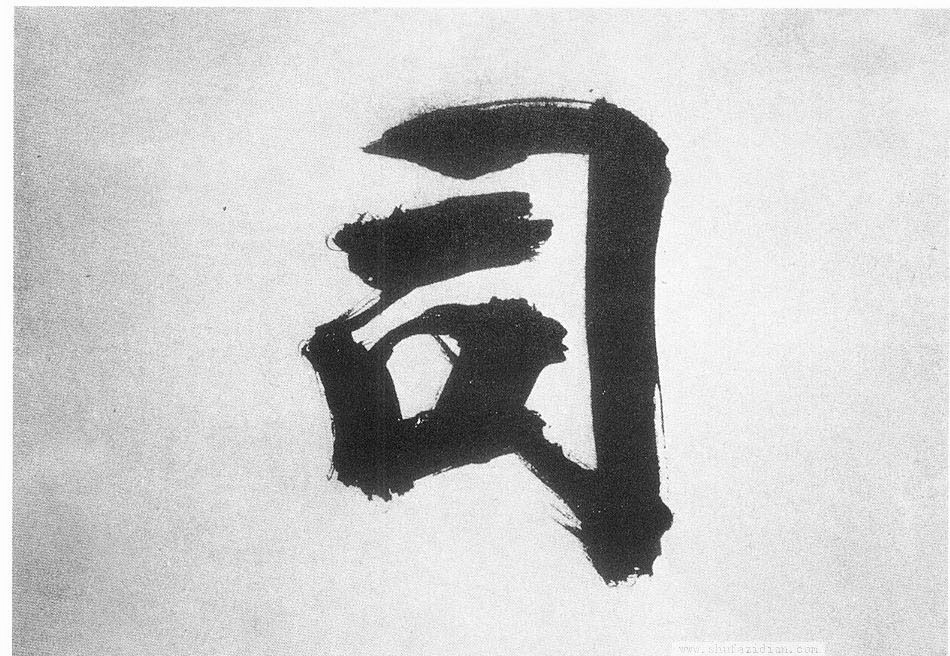 司
www.shufazidian.com